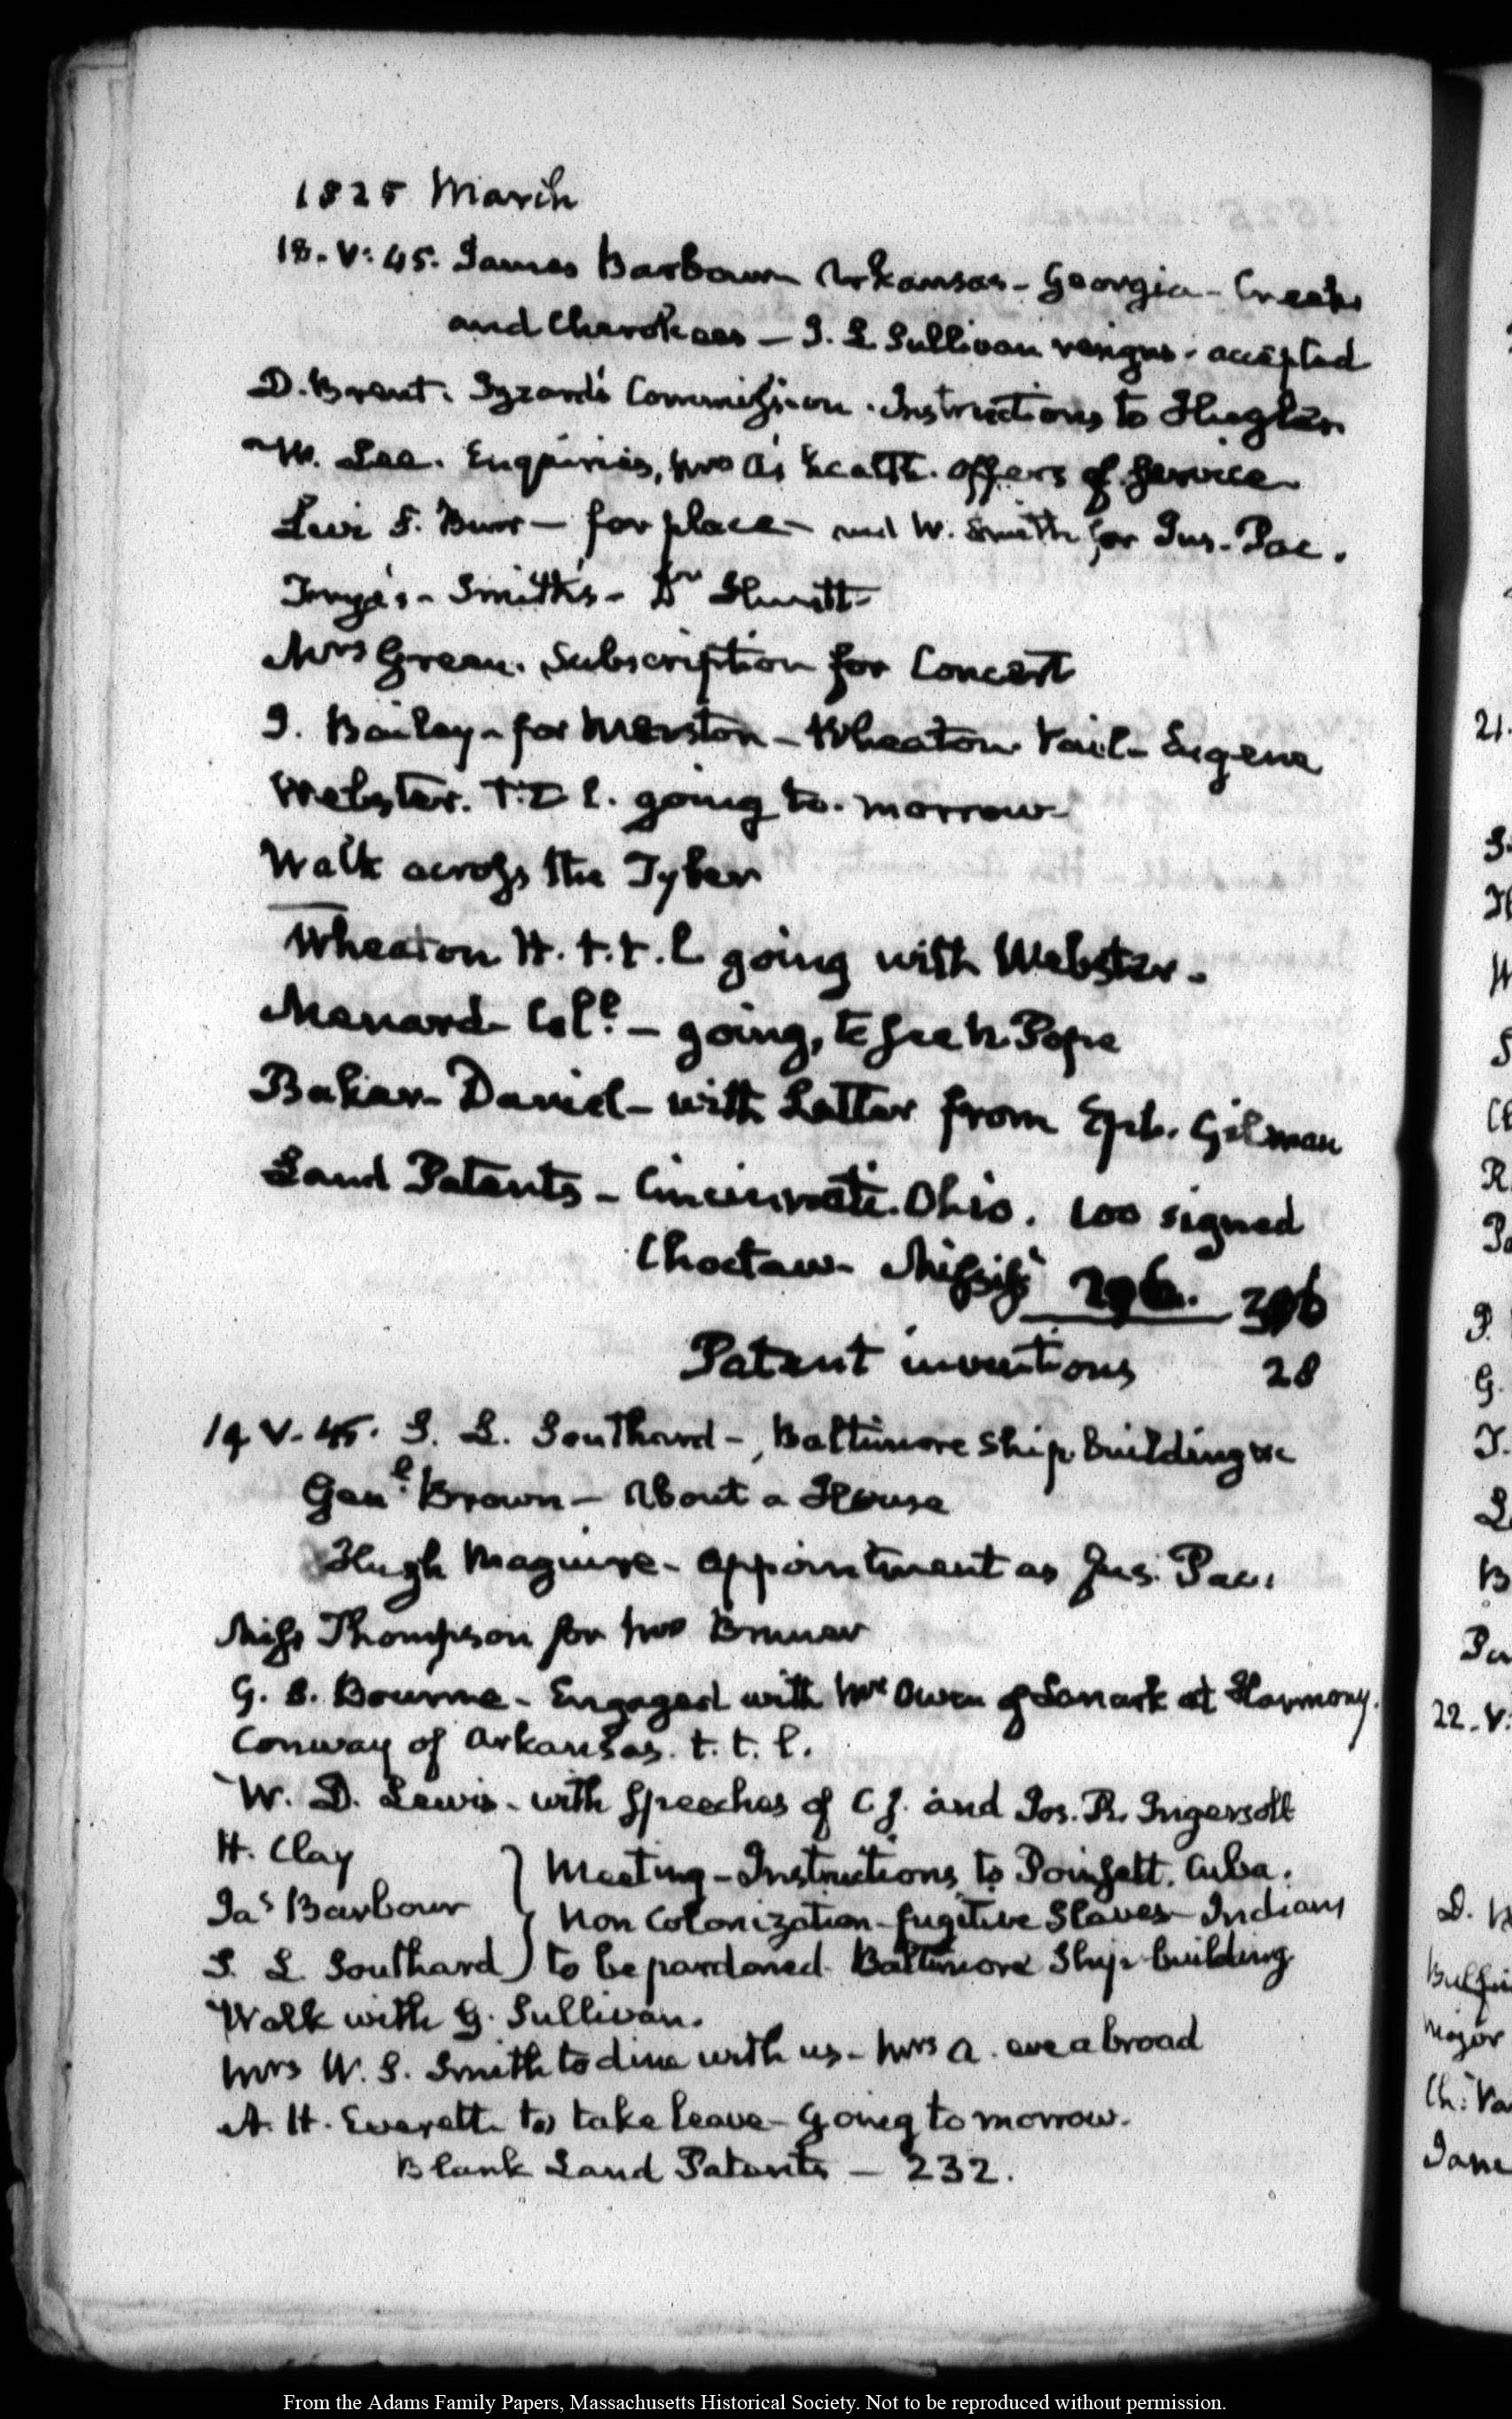 1825 March
18. V: 45. James Barbour Arkansas - Georgia - Creeks
and Cherokees — J. L Sullivan resigns - accepted
D. Brent. Izard's Commission. Instructions to Hughes.
W. Lee. Enquiries, Mrs A's health. offers of service
Levi S. Burr — for place — and W. Smith for Jus. Pac.
Smith's - Dr Huntt
Mrs Green. Subscription for Concert
J. Bailey - for Marston - Wheaton Vail - Eugene
Webster. T. T L. going to-morrow
Walk across the Tyber
Wheaton H. t. t. l going with Webster.
Menard Col.l — going, to see N. Pope
Baker - David - with Letter from Eph. Gilman
Land Patents - Cincinnati. Ohio. 100 signed
Choctaw - Missisi 296. 396
Patent inventions 28
19 V. 45. S. L. Southard -, Baltimore Ship building &c
Gen.l Brown — About a House
Hugh Maguire - appointment as Jus. Pac.
Miss Thompson for Mrs Bruner
G. S. Bourne - Engaged with Mr Owen of Lanark at Harmony.
Conway of Arkansas. t. t. l.
W. D. Lewis - with Speeches of C J. and Jos. R. Ingersoll
H. Clay } Meeting - Instructions to Poinsett. Cuba.
Jas Barbour Non Colonization - fugitive Slaves - Indians
S. L Southard to be pardoned. Baltimore Ship-building
Walk with G. Sullivan.
Mrs W. S. Smith to dine with us - Mrs A. eve abroad
A. H. Everett to take leave - Going to morrow.
Blank Land Patents — 232.
21.
22. V:
From the Adams Family Papers, Massachusetts Historical Society. Not to be reproduced without permission.